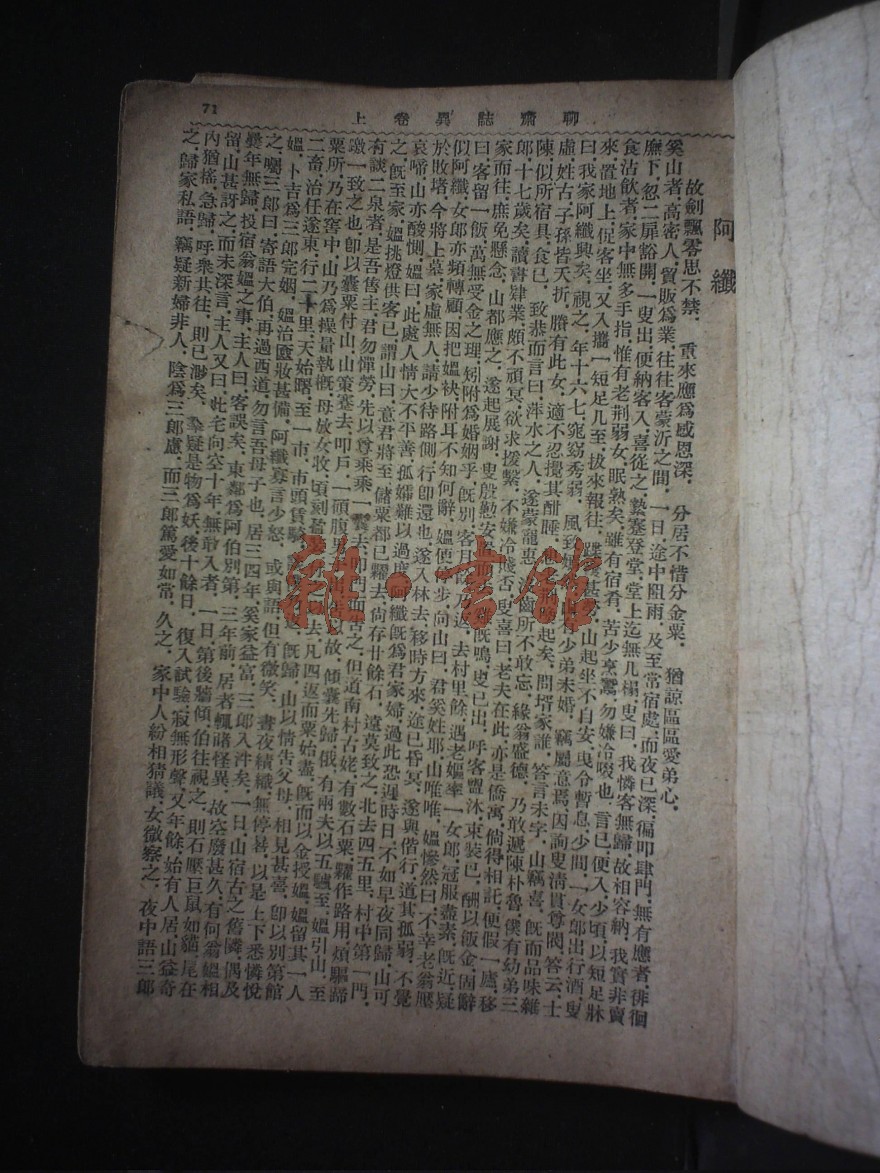 71
聊齋誌異卷上
阿纖
故劍飄零思不禁．重來應爲感恩深．分居不惜分金粟．猶諒區區愛弟心．
奚山者．高密人．貿販爲業．往往客蒙沂之間．一日．途中阻雨．及至常宿處．而夜已深．徧叩肆門．無有應者．徘徊
廡下．忽二扉豁開．一叟出．便納客入．喜從之．縶蹇登堂．堂上迄無几榻．叟曰．我憐客無歸．故相容納．我實非賣
食沽飲者．家中無多手指．惟有老荆弱女．眠熟矣．雖有宿肴．苦少烹鬻．勿嫌冷啜也．言已便入．少頃．以短足牀
來置地上．促客坐．又入攜一短足几至．拔來報往．蹀躞甚勞．山起坐不自安．曳令暫息．少間．一女郎出行酒．叟
曰．我家阿纖興矣．視之．年十六七．窈窕秀弱．風致嫣然．山有少弟未婚．竊屬意焉．因詢叟清貫尊閥．答云．士
虛．姓古．子孫皆夭折．賸有此女．適不忍攪其酣睡．想老荆喚起矣．問壻家誰．答言未字．山竊喜．旣而品味雜
陳．似所宿具．食已．致恭而言曰．萍水之人．遂蒙寵惠．沒齒所不敢忘．緣翁盛德．乃敢遽陳朴魯．僕有幼弟三
郎．十七歲矣．讀書肄業．頗不頑冥．欲求援繫．不嫌寒賤否．叟喜曰．老夫在此．亦是僑寓．倘得相託．便假一廬．移
家而往．庶免懸念．山都應之．遂起展謝．叟殷懃安置而去．雞旣鳴．叟已出．呼客盥沐．束裝已．酬以飯金．固辭
曰．客留一飯．萬無受金之理．矧附爲婚姻乎．旣別．客月餘．乃返．去村里餘．遇老媼率一女郎．冠服盡素．旣近．疑
似阿纖．女郎亦頻轉顧．因把媼袂．附耳不知何辭．媼便停步．向山曰．君奚姓耶．山唯唯．媼慘然曰．不幸老翁壓
於敗堵．今將上墓．家虛無人．請少待路側．行卽還也．遂入林去．移時方來．途已昏冥．遂與偕行．道其孤弱．不覺
哀啼．山亦酸惻．媼曰．此處人情大不平善．孤孀難以過度．阿纖旣爲君家婦．過此恐遲時日．不如早夜同歸．山可
之．旣至家．媼挑燈供客已．謂山曰．意君將至．儲粟都已糶去．尙存廿餘石．遠莫致之．北去四五里．村中第一門．
有談二泉者．是吾售主．君勿憚勞．先以尊乘乘一囊去．叩門而告之．但道南村古姥．有數石粟．糶作路用．煩驅蹄
躈一致之也．卽以囊粟付山．山策蹇去．叩戶．一碩腹男子出．告以故．傾囊先歸．俄有兩夫以五騾至．媼引山至
粟所．乃在窖中．山乃爲操量執概．母放女收．頃刻盈裝．付之以去．凡四返而粟始盡．旣而以金授媼．媼留其一人
二畜．治任遂東．行二十里．天始曙．至一市．市頭賃騎．談僕乃返．旣歸．山以情告父母．相見甚喜．卽以別第館
媼．卜吉爲三郎完姻．媼治匳妝甚備．阿纖寡言少怒．或與語．但有微笑．晝夜績織．無停晷．以是上下悉憐悅
之．囑三郎曰．寄語大伯．再過西道．勿言吾母子也．居三四年．奚家益富．三郎入泮矣．一日．山宿古之舊鄰．偶及
曩年無歸．投宿翁媼之事．主人曰．客誤矣．東鄰爲阿伯別第．三年前．居者輒睹怪異．故空廢甚久．有何翁媼相
留．山甚訝之．而未深言．主人又曰．此宅向空十年．無敢入者．一日．第後牆傾．伯往視之．則石壓巨鼠如貓．尾在
內猶搖．急歸．呼衆共往．則已渺矣．羣疑是物爲妖．後十餘日．復入試驗．寂無形聲．又年餘．始有人居．山益奇
之．歸家私語．竊疑新婦非人．陰爲三郎慮．而三郎篤愛如常．久之．家中人紛相猜議．女微察之．夜中語三郎
雜·書館